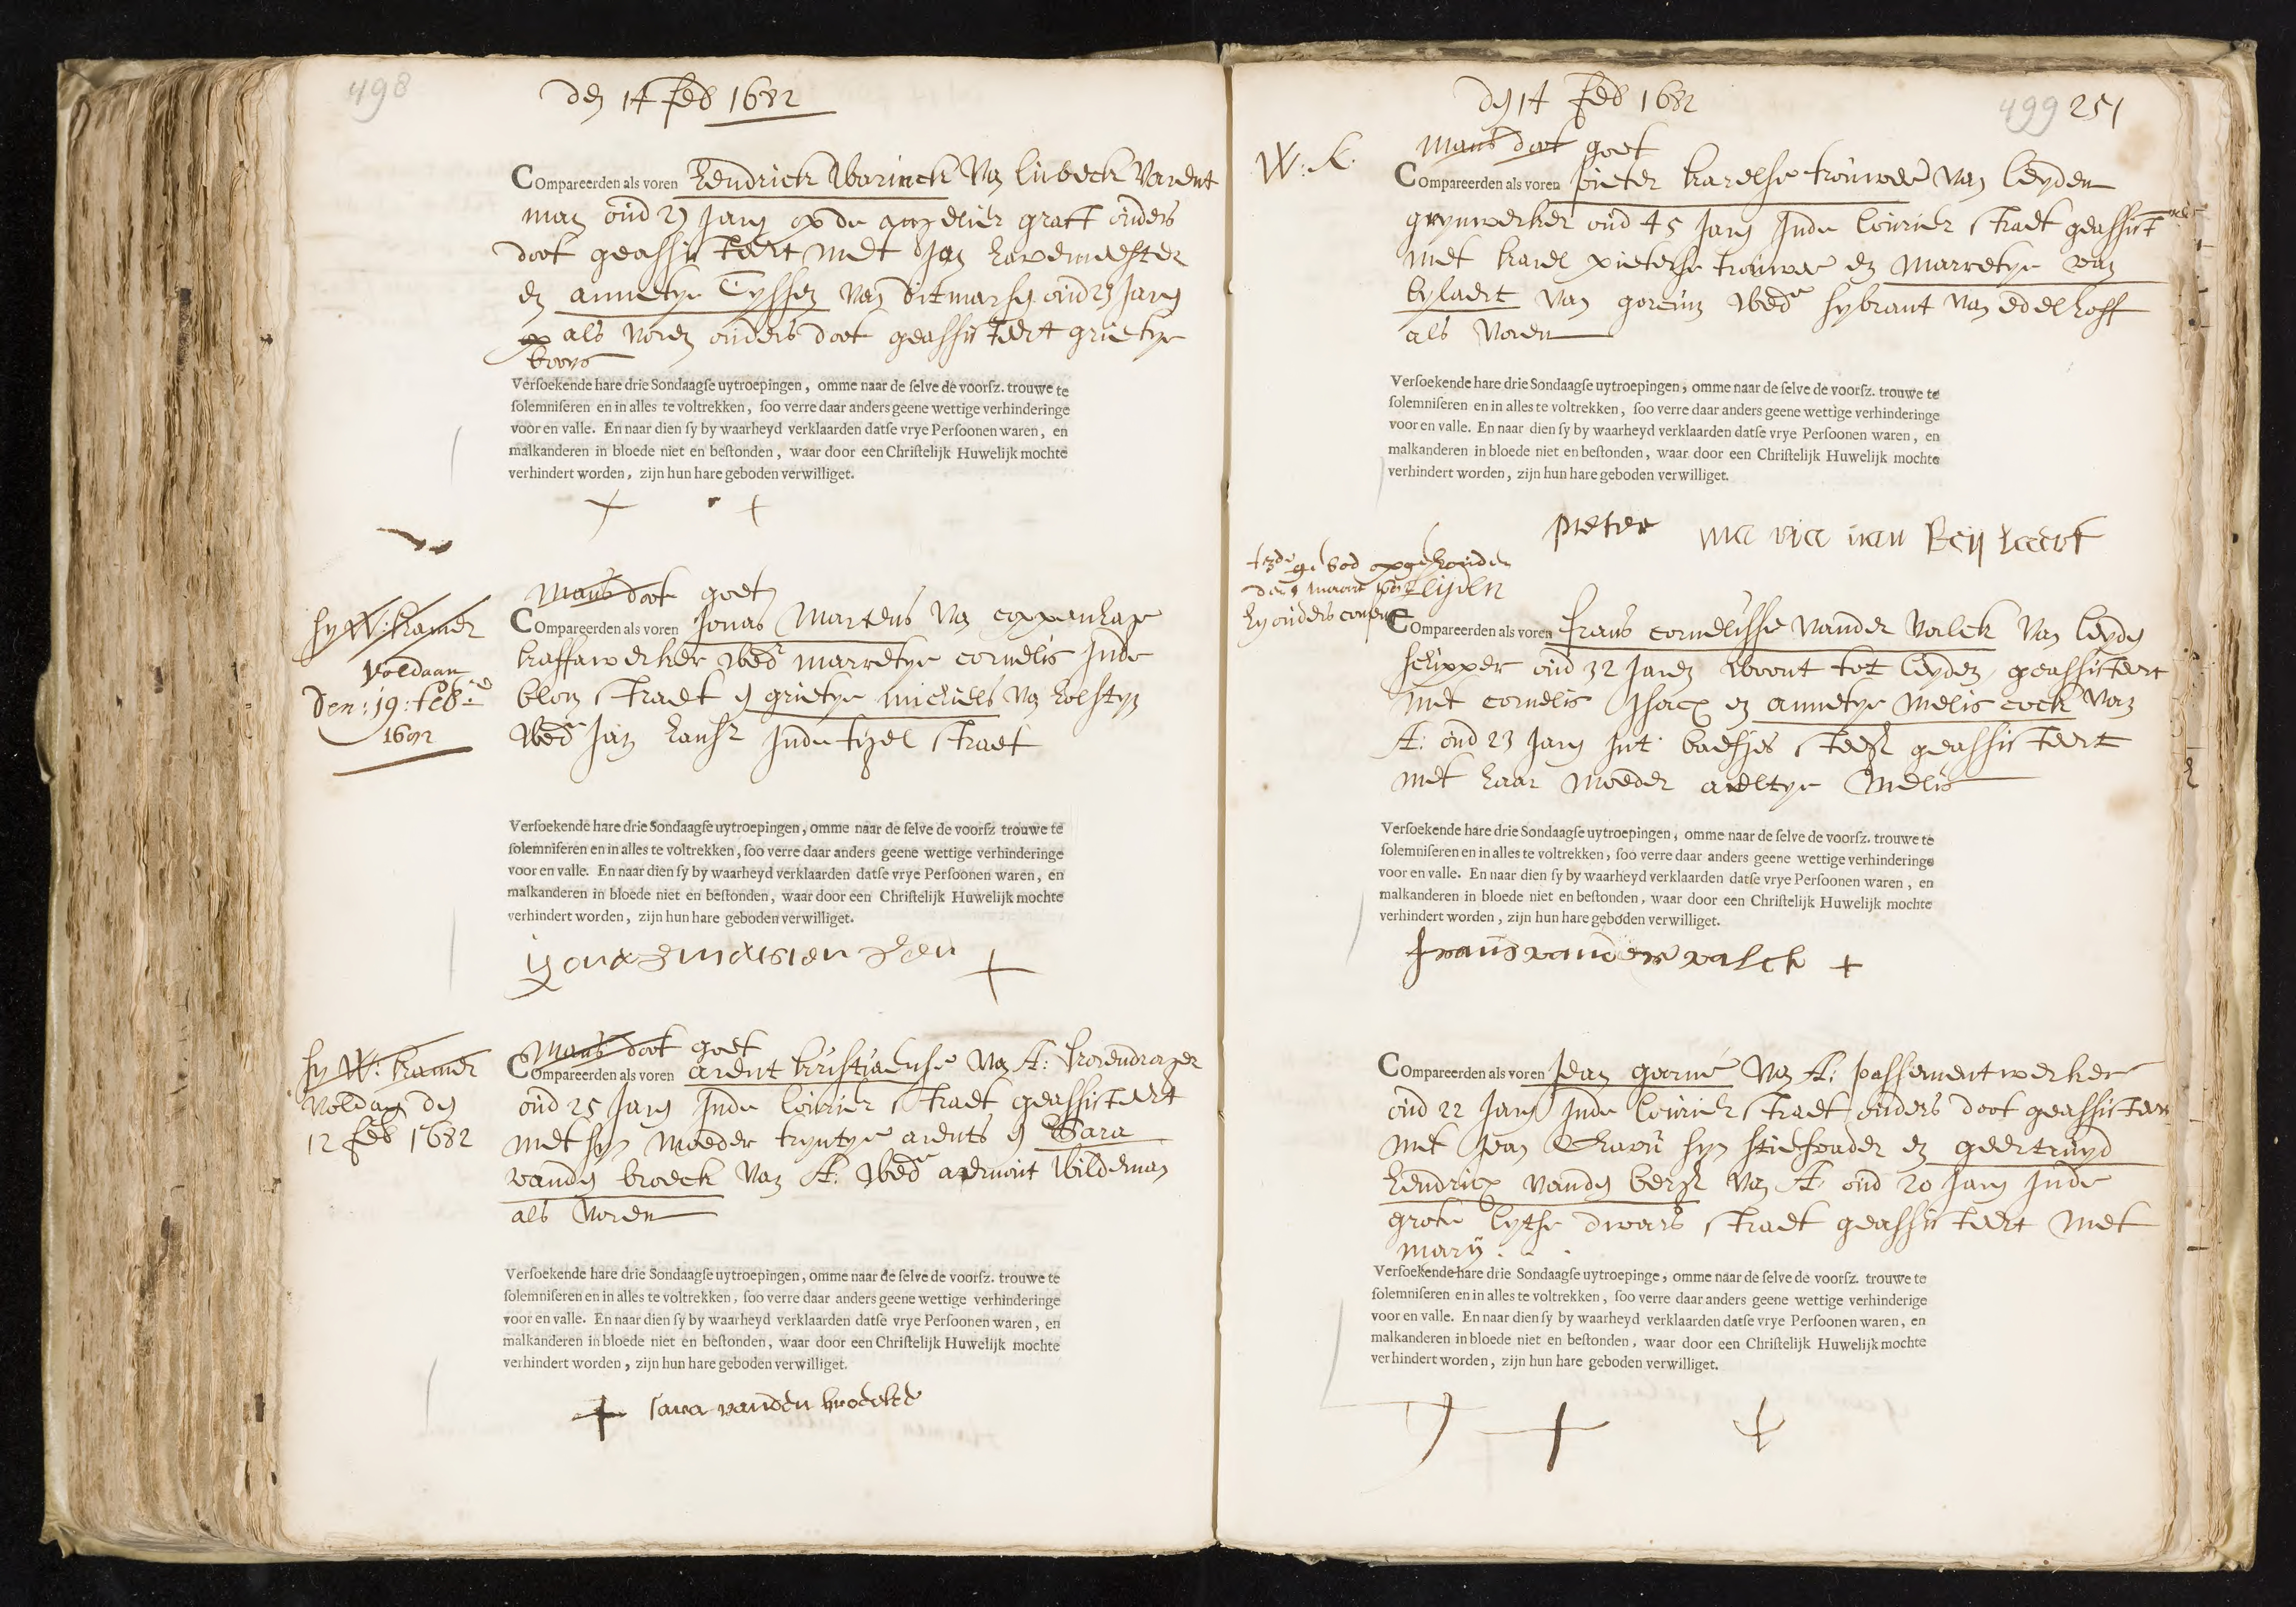 498
den 14 feb 1682
Compareerden als voren Hendrick Warinck van lubeck varent
man oud 27 Jaren op de angelier graft ouders
doot geassisteert met Jan havermeester
en annetye Tyssen van ditmarsen oud 27 Jaren
op als voren ouders doot geassisteert grietye
boons
Verſoekende hare drie Sondaagſe uytroepingen, omme naar de ſelve de voorſz. trouwe te
ſolemniſeren en in alles te voltrekken, ſoo verre daar anders geene wettige verhinderinge
voor en valle. En naar dien ſy by waarheyd verklaarden datſe vrye Perſoonen waren, en
malkanderen in bloede niet en beſtonden, waar door een Chriſtelijk Huwelijk mochte
verhindert worden, zijn hun hare geboden verwilliget.
Mans doot goet
hy W: kamer
voldaan
Den: 19: feb
1682
Compareerden als voren Jonas Martens van coppenhage
kaffawerker wedr marretye cornelis Inde
blom straet en grietye michiels van holstyn
wede Jan hansz Inde tigel straet
Verſoekende hare drie Sondaagſe uytroepingen, omme naar de ſelve de voorſz trouwe te
ſolemniſeren en in alles te voltrekken, ſoo verre daar anders geene wettige verhinderinge
voor en valle. En naar dien ſy by waarheyd verklaarden datſe vrye Perſoonen waren, en
malkanderen in bloede niet en beſtonden, waar door een Chriſtelijk Huwelijk mochte
verhindert worden, zijn hun hare geboden verwilliget.
Mans doot goet
hy W: kamer
voldaen den
12 feb 1682
Compareerden als voren arent kristiaense van A: korendrager
oud 25 Jaren Inde lourier straet geassisteert
met syn moeder tryntye arents en Sara
vanden broeck van A: wede aermout wildeman
als voren
Verſoekende hare drie Sondaagſe uytroepingen, omme naar de ſelve de voorſz. trouwe te
ſolemniſeren en in alles te voltrekken, ſoo verre daar anders geene wettige verhinderinge
voor en valle. En naar dien ſy by waarheyd verklaarden datſe vrye Perſoonen waren, en
malkanderen in bloede niet en beſtonden, waar door een Chriſtelijk Huwelijk mochte
verhindert worden, zijn hun hare geboden verwilliget.
sara vanden broecke
den 14 feb 1682
499 251
W: K.
Mans doot goet
Compareerden als voren pieter karelse trouwee van leyden
greynwerker oud 45 Jaren Inde lourier straet geassist
met karel pieterse trouwee en marretye van
bylaert van gorcum wede sybrant van edelhoff
als voren
Verſoekende hare drie Sondaagſe uytroepingen, omme naar de ſelve de voorſz. trouwe te
ſolemniſeren en in alles te voltrekken, ſoo verre daar anders geene wettige verhinderinge
voor en valle. En naar dien ſy by waarheyd verklaarden datſe vrye Perſoonen waren, en
malkanderen in bloede niet en beſtonden, waar door een Chriſtelijk Huwelijk mochte
verhindert worden, zijn hun hare geboden verwilliget.
pieter maria van Beijlaert
t 3de gebod opgehouden
den maart 1682 leijden
hy ouders consent
Compareerden als voren frans cornelisse vander valck van leyden
schipper oud 32 Jaren woont tot leyden, geassisteert
met cornelis Isacx en annetye melis cock van
A: oud 23 Jaren Int baefjes steeg geassisteert
met haar moeder aeltye melis
Verſoekende hare drie Sondaagſe uytroepingen, omme naar de ſelve de voorſz. trouwe te
ſolemniſeren en in alles te voltrekken, ſoo verre daar anders geene wettige verhinderinge
voor en valle. En naar dien ſy by waarheyd verklaarden datſe vrye Perſoonen waren, en
malkanderen in bloede niet en beſtonden, waar door een Chriſtelijk Huwelijk mochte
verhindert worden, zijn hun hare geboden verwilliget.
frans vander valck
Compareerden als voren Jean gorné van A: passementwerker
oud 22 Jaren Inde lourier straet ouders doot geassisteert
met Jean syn stiefvader en geertruyd
hendricx vanden berg van A oud 20 Jaren Inde
grote lytse dwars straet geassisteert met
marij
Verſoekende hare drie Sondaagſe uytroepinge, omme naar de ſelve de voorſz. trouwe te
ſolemniſeren en in alles te voltrekken, ſoo verre daar anders geene wettige verhinderige
voor en valle. En naar dien ſy by waarheyd verklaarden datſe vrye Perſoonen waren, en
malkanderen in bloede niet en beſtonden, waar door een Chriſtelijk Huwelijk mochte
verhindert worden, zijn hun hare geboden verwilliget.